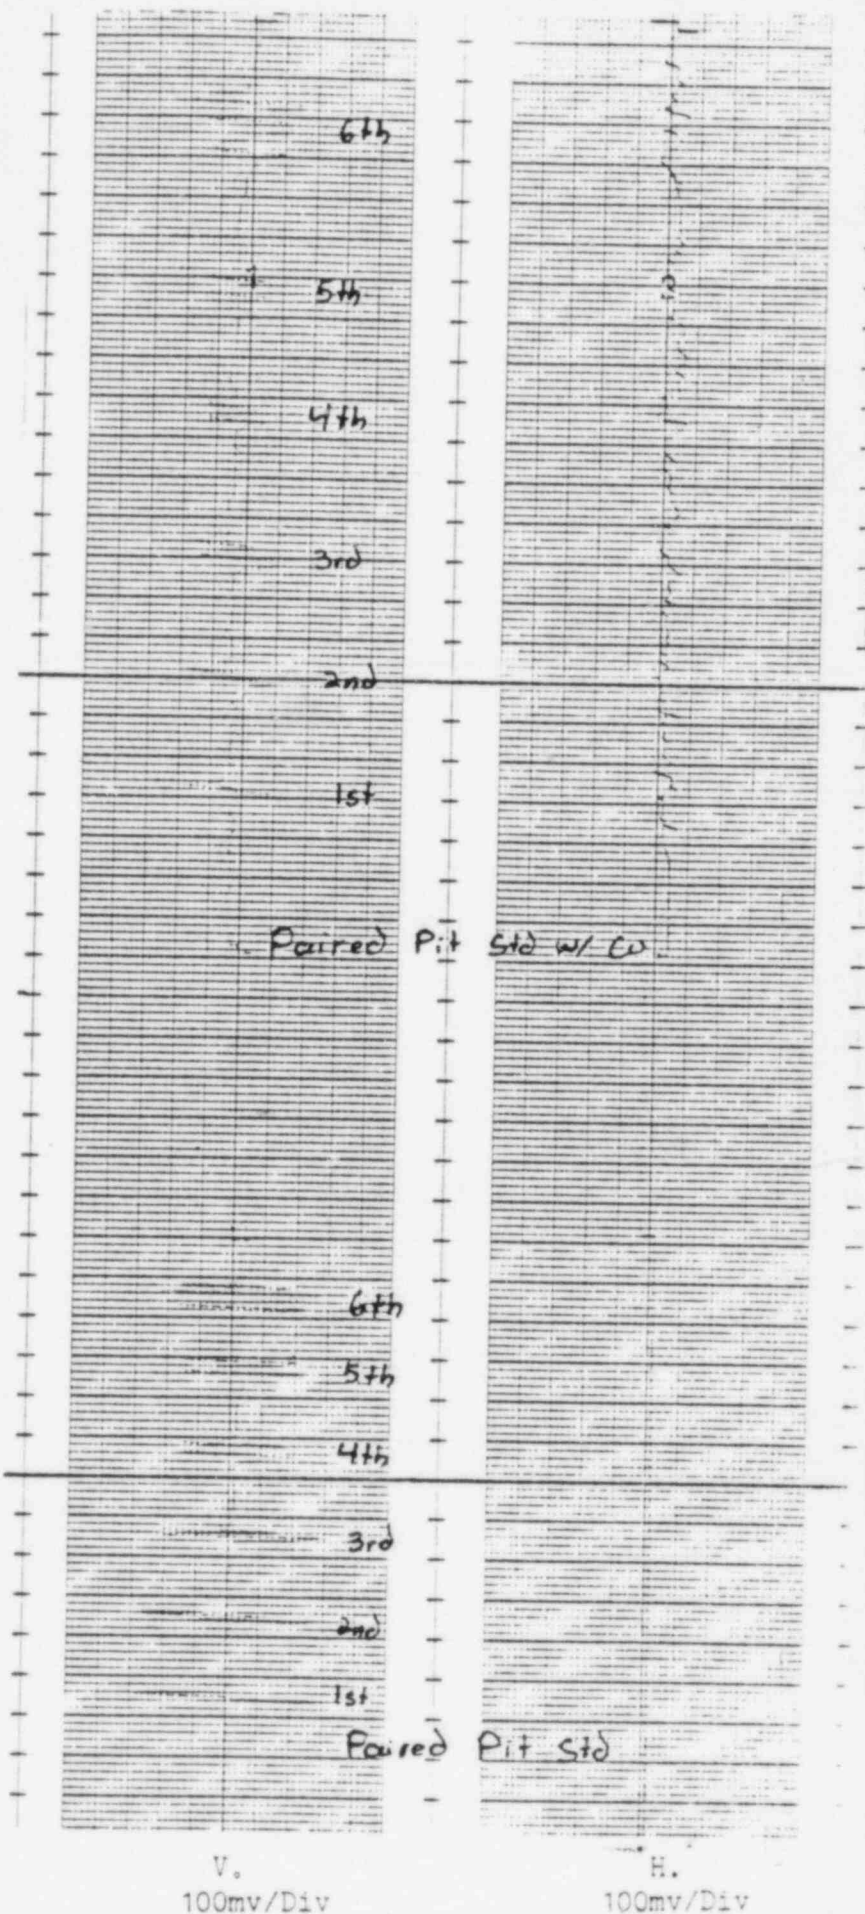 6th
5th
4th
3rd
2nd
1st
Paired Pit Std w/ Cu
6th
5th
4th
3rd
2nd
1st
Paired Pit Std
V. H.
100mv/Div 100mv/Div